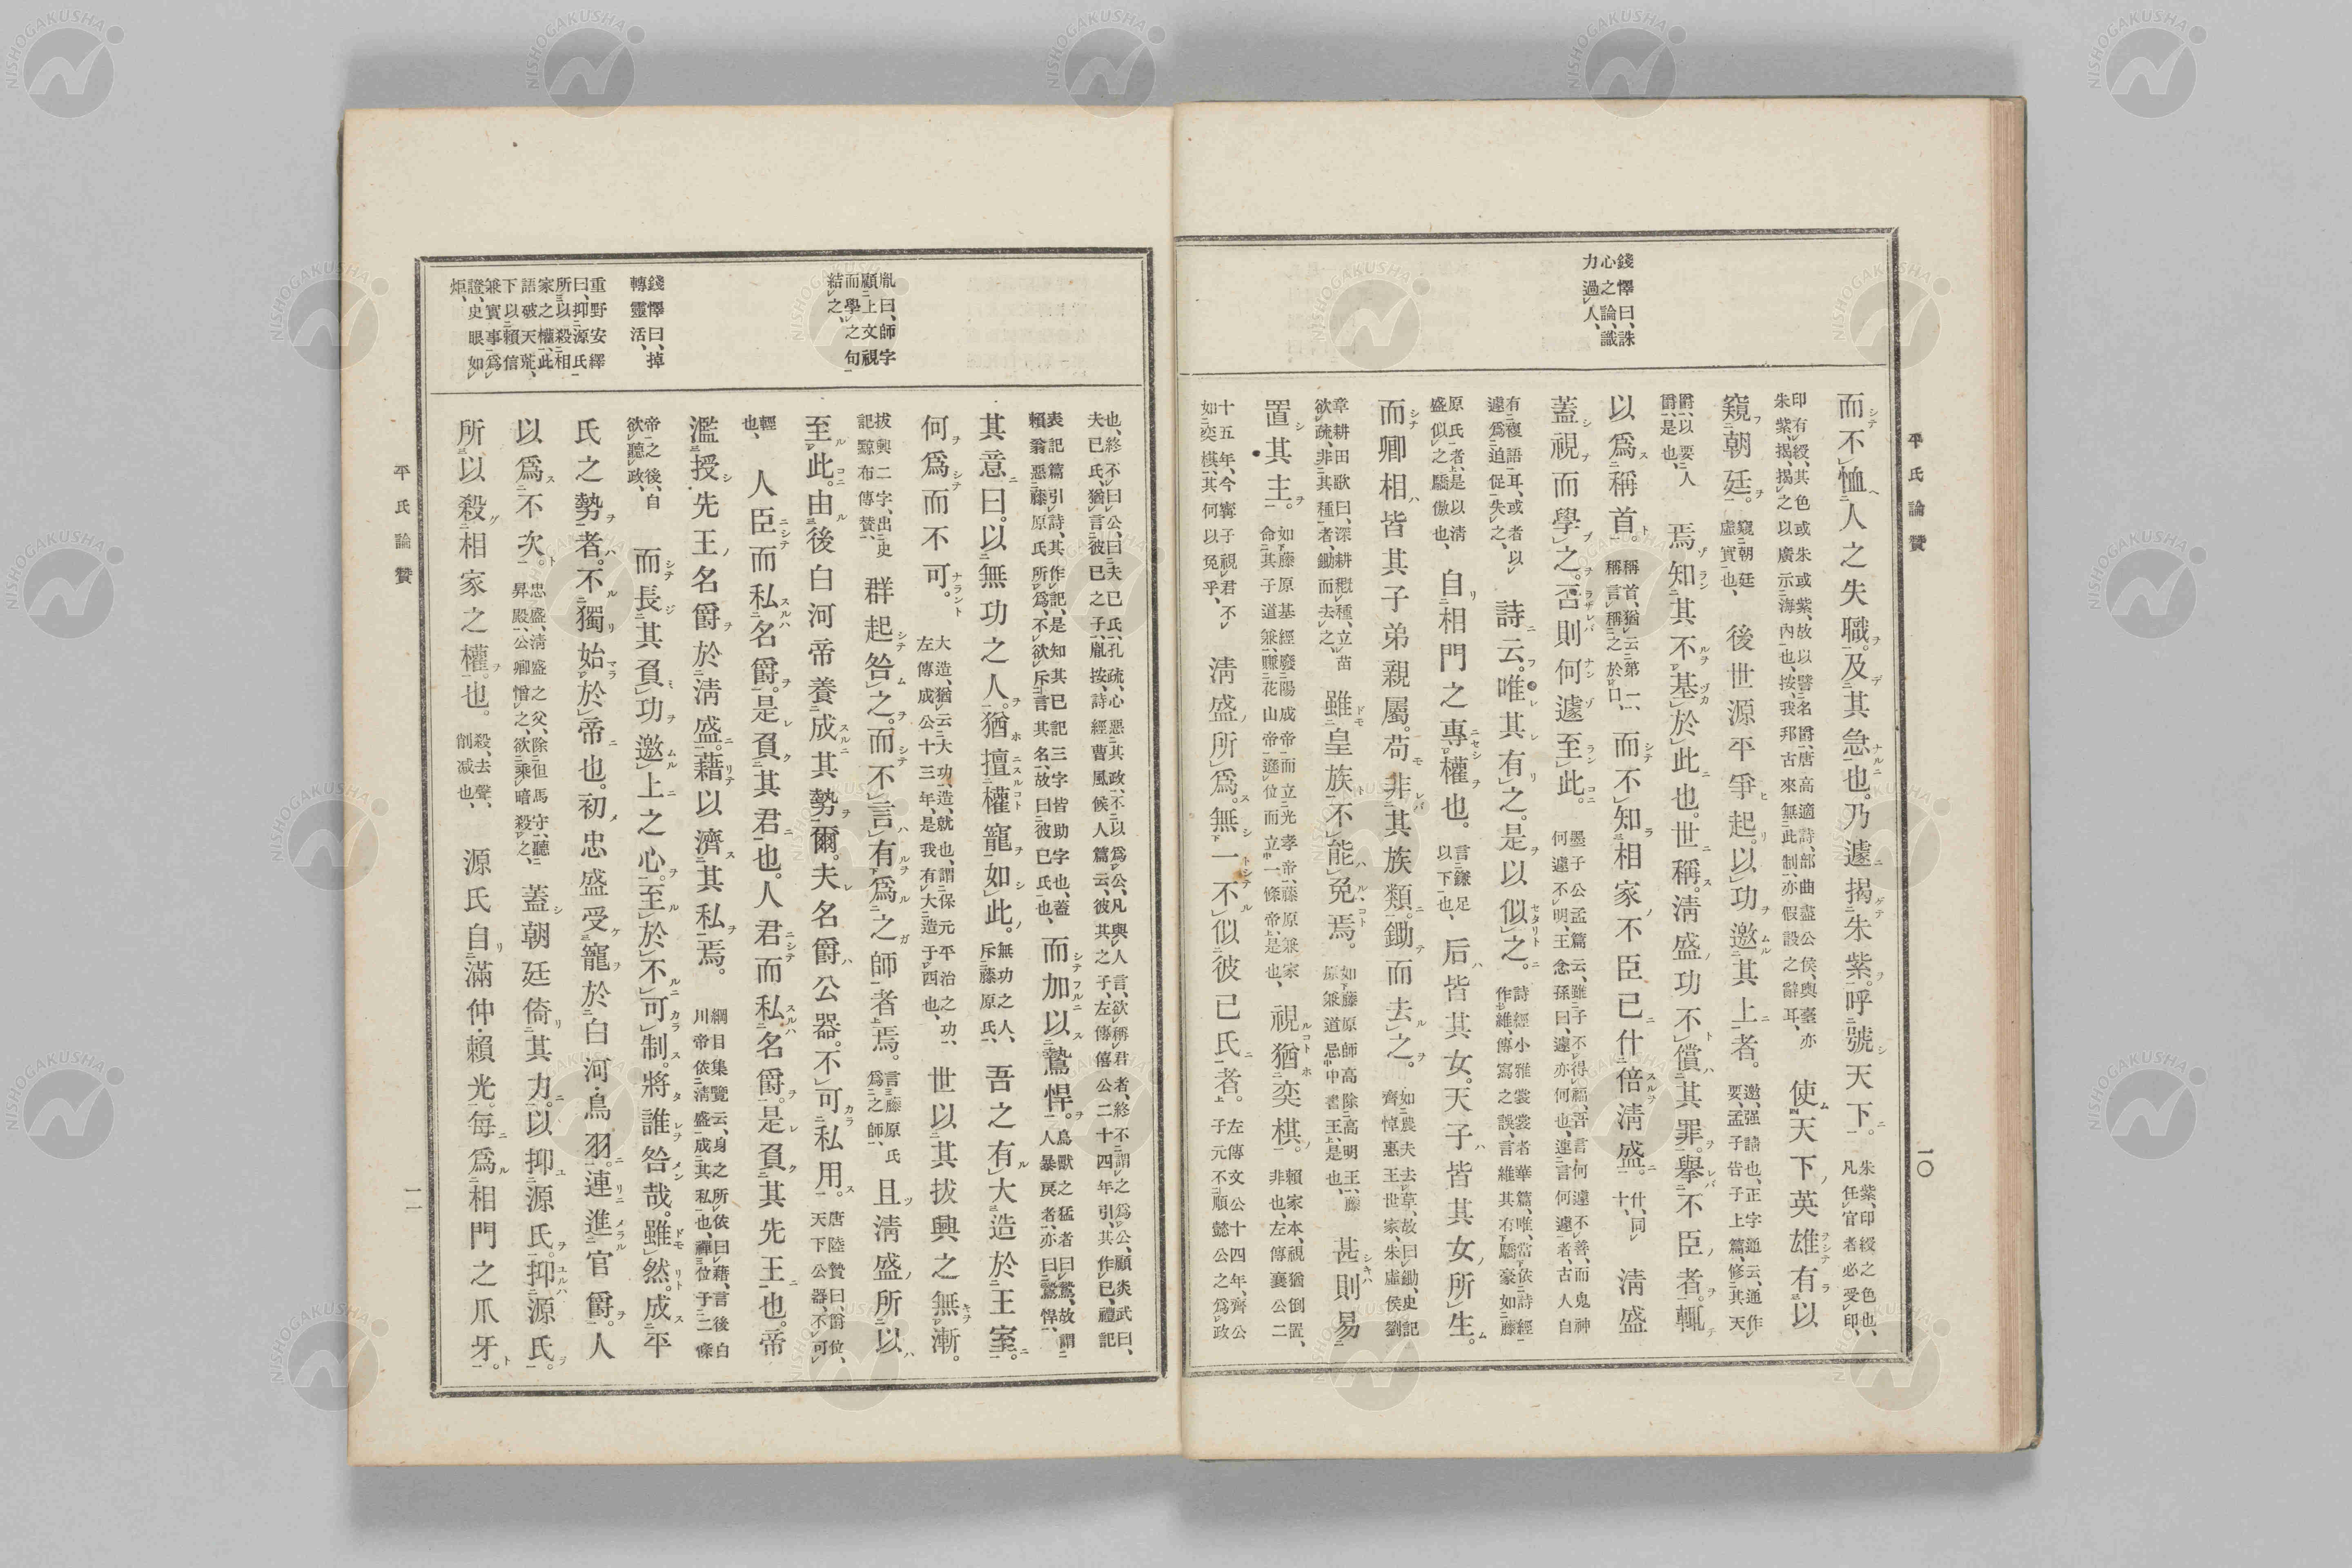 平氏論贊
一〇
錢懌曰、誅
心之論、識
力過人、
而不恤人之失職。及其急也。乃遽揭朱紫。呼號天下。朱紫、印綬之色也、凡任官者必受印、
印有綬、其色或朱或紫、故以譬名爵、唐高適詩、部曲盡公侯、輿臺亦朱紫、揭、揭之以廣示海內也、按、我邦古來無此制、亦假設之辭耳、使天下英雄有以
窺朝廷。窺朝廷虛實也、後世源平爭起。以功邀其上者。邀、强請也、正字通云、通作要、孟子告子上篇、修其天
爵、以要人爵、是也、焉知其不基於此也。世稱。淸盛功不償其罪。擧不臣者。輒
以爲稱首。稱首、猶云第一、稱言稱之於口、而不知相家不臣已什倍淸盛。什、同十、淸盛
蓋視而學之。否則何遽至此。墨子公孟篇云、雖子不得福、吾言何遽不善、而鬼神何遽不明、王念孫曰、遽亦何也、連言何遽者、古人自
有複語耳、或者以遽爲迫促、失之、詩云。唯其有之。是以似之。詩經小雅裳裳者華篇、唯、當依詩經作維、傳寫之誤、言維其有驕豪如藤
原氏者、是以淸盛似之驕傲也、自相門之專權也。言鎌足以下也、后皆其女。天子皆其女所生。
而卿相皆其子弟親屬。苟非其族類。鋤而去之。如農夫去草、故曰鋤、史記齊悼惠王世家、朱虛侯劉
章耕田歌曰、深耕穊種、立苗欲疏、非其種者、鋤而去之、雖皇族不能免焉。如藤原師高除高明王、藤原兼道忌中書王、是也、甚則易
置其主。如藤原基經廢陽成帝而立光孝帝、藤原兼家命其子道兼、賺花山帝遜位而立一條帝、是也、視猶奕棋。賴家本、視猶倒置、非也、左傳襄公二
十五年、今寗子視君不如奕棋、其何以免乎、淸盛所爲。無一不似彼己氏者。左傳文公十四年、齊公子元不順懿公之爲政
胤曰、師字
顧上文視
而學之句
結之、
錢懌曰、掉
轉靈活、
重野安繹
曰、抑源氏
所以殺相
家之權、此
語破天荒、
下以賴信
兼實事爲
證、史眼如
炬、
也、終不曰公、曰夫己氏、孔疏、心惡其政、不以爲公、凡與人言、欲稱君者、終不謂之爲公、顧炎武曰、夫己氏、猶言彼己之子、胤按、詩經曹風候人篇云、彼其之子、左傳僖公二十四年引、其作己、禮記
表記篇引詩、其作記、是知其己記三字皆助字也、蓋賴翁惡藤原氏所爲、不欲斥言其名、故曰彼己氏也、而加以鷙悍。鳥獸之猛者曰鷙、故謂人暴戾者、亦曰鷙悍、
其意曰。以無功之人。猶擅權寵如此。無功之人、斥藤原氏、吾之有大造於王室。
何爲而不可。大造、猶云大功、造、就也、謂保元平治之功、左傳成公十三年、是我有大造于西也、世以其拔興之無漸。
拔興二字、出史記黥布傳贊、群起咎之。而不言有爲之師者焉。言藤原氏爲之師、且淸盛所以
至此。由後白河帝養成其勢爾。夫名爵公器。不可私用。唐陸贄曰、爵位、天下公器、不可
輕也、人臣而私名爵。是負其君也。人君而私名爵。是負其先王也。帝
濫授先王名爵於淸盛。藉以濟其私焉。綱目集覽云、身之所依曰藉、言後白川帝依淸盛成其私也、禪位于二條
帝之後、自欲聽政、而長其負功邀上之心。至於不可制。將誰咎哉。雖然。成平
氏之勢者。不獨始於帝也。初忠盛受寵於白河·鳥羽。連進官爵。人
以爲不次。忠盛、淸盛之父、除但馬守、聽昇殿、公卿憎之、欲乘暗殺之、蓋朝廷倚其力。以抑源氏。抑源氏。
所以殺相家之權也。殺、去聲、削減也、源氏自滿仲·賴光。每爲相門之爪牙。
平氏論贊
一一
NISHOGAKUSHA